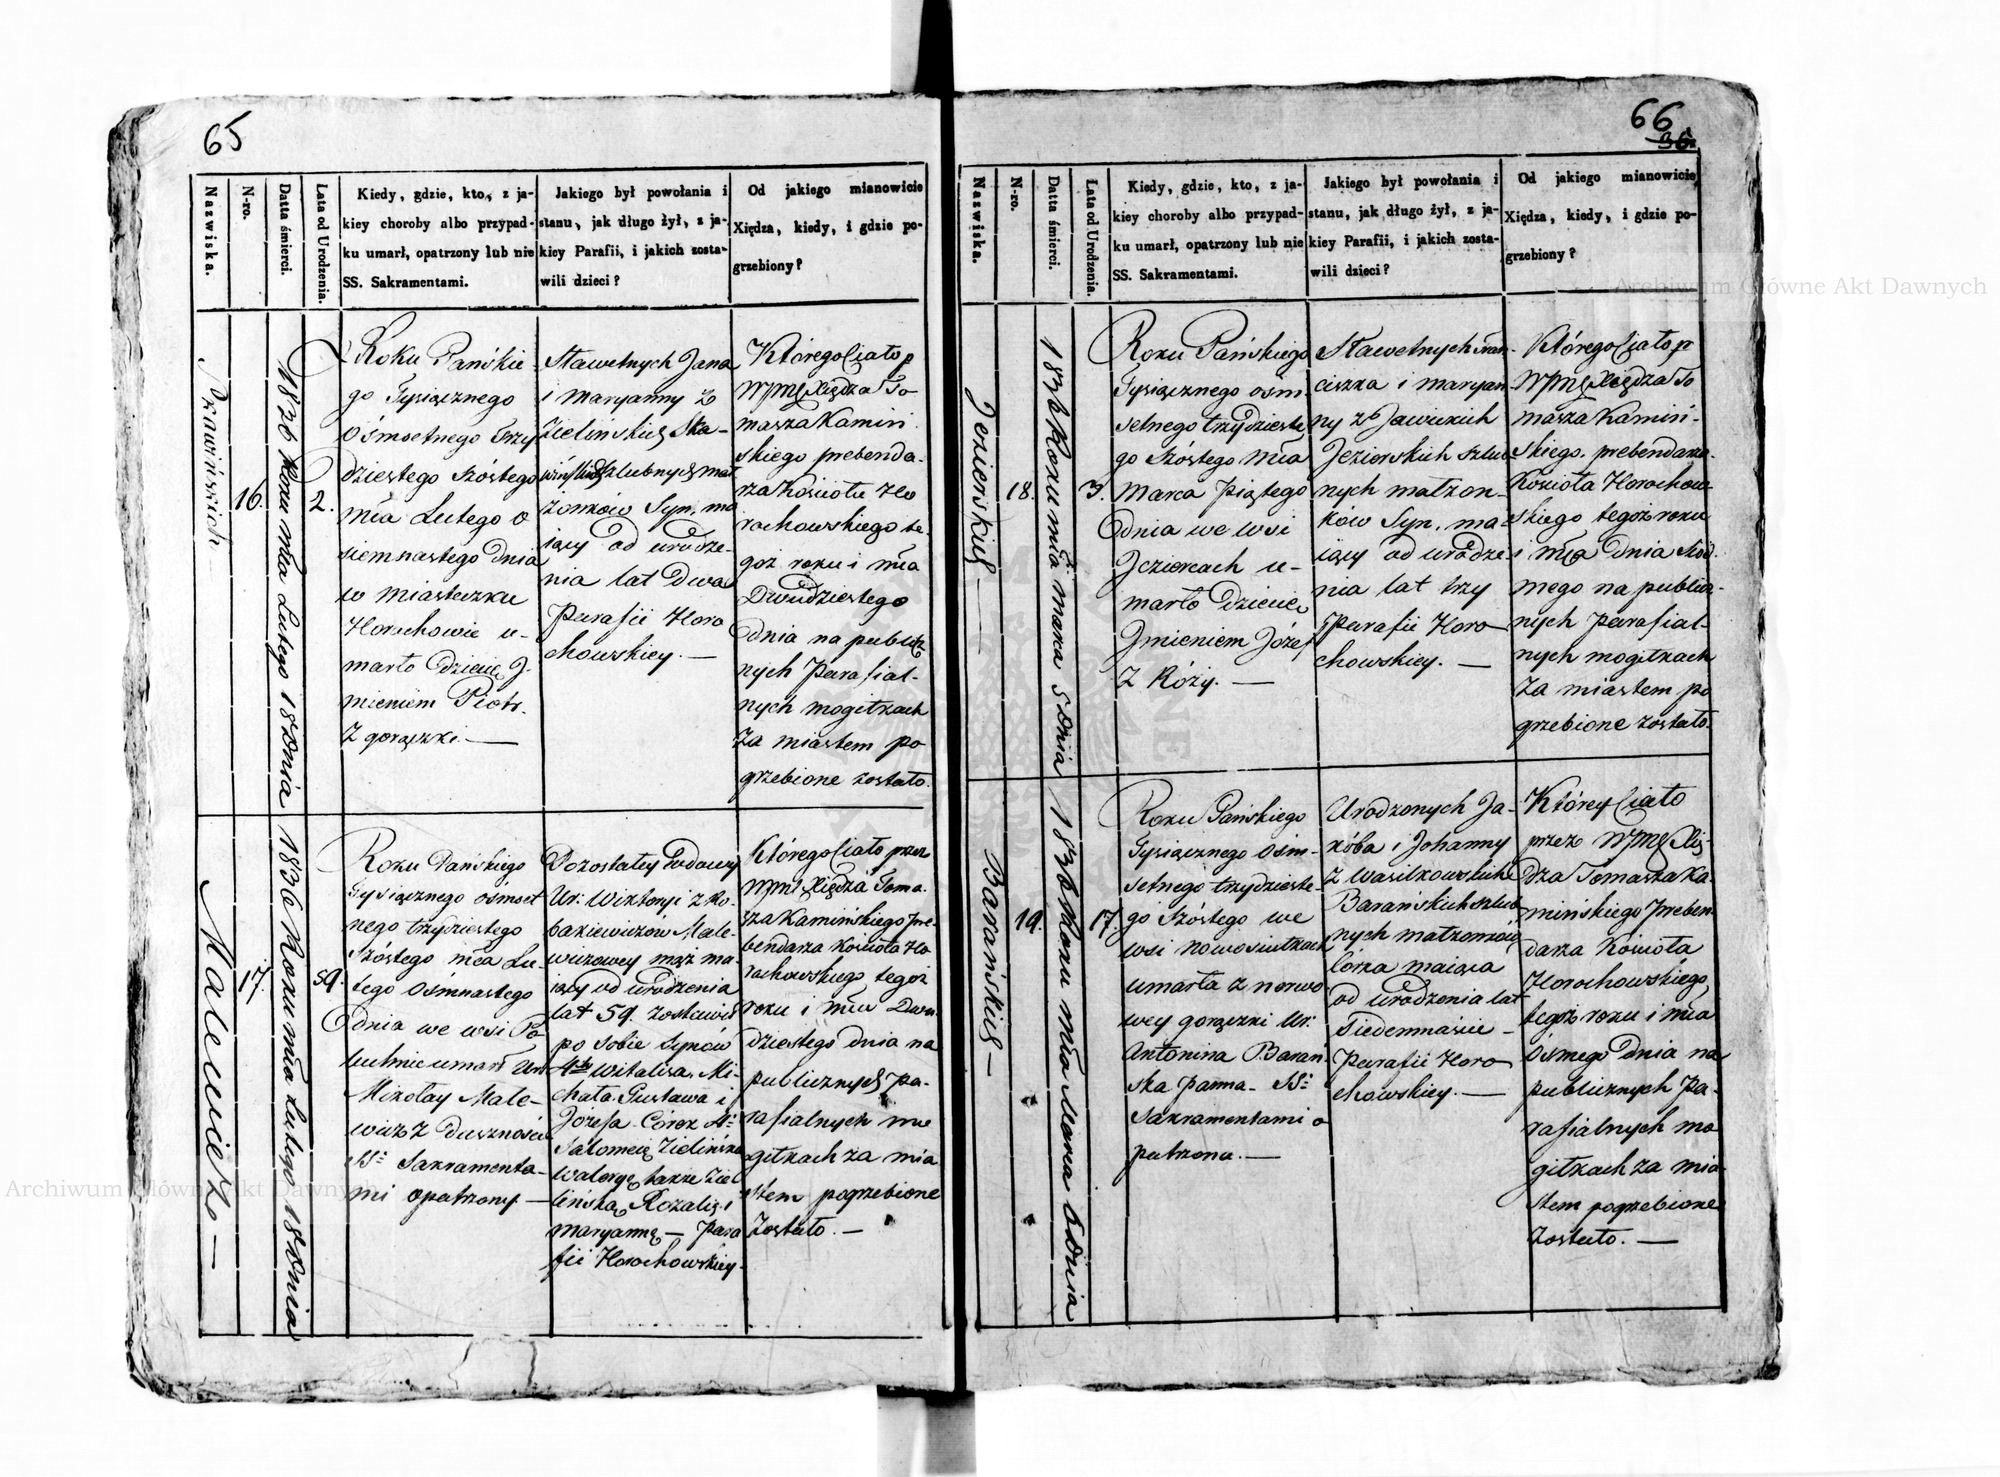 65
Nazwiska.
N-ro.
Datta śmierci.
Lata od Urodzenia.
Kiedy, gdzie, kto, z ja-
kiey choroby albo przypad-
ku umarł, opatrzony lub nie
SS. Sakramentami.
Jakiego był powołania i
stanu, jak długo żył, z ja-
kiey Parafii, i jakich zosta-
wili dzieci?
Od jakiego mianowicie
Xiędza, kiedy, i gdzie po-
grzebiony?
16.
1836 Roku mca Lutego 18 Dnia
2.
Roku Pańskie
go Tysiącznego
Ośmsetnego trzy
dziestego szóstego
mca Lutego o
siemnastego dnia
w miasteczku
Horochowie u-
marło Dziecię J-
mieniem Piotr.
Z gorączki.—
Sławetnych Jana
i Maryanny z
Zielinskich Ska-
szlubnych mał
żonków Syn, ma
iący od urodze-
nia lat Dwa
Parafii Horo
chowskiey.—
Którego Ciało p
WJmć Xiędza To-
masza Kamiń
skiego prebenda-
rza Kościołu Ho
rochowskiego te-
goż roku i mca
Dwudziestego
dnia na publicz
nych Parafial-
nych mogiłkach
za miastem po
grzebione zostało.
Malewicz—
17.
1836 Roku mca Lutego 18 Dnia
59.
Roku Pańskiego
Tysiącznego ośmset
nego trzydziestego
szóstego mca Lu-
tego Ośmnastego
dnia we wsi
umarł Ur.
Mikołay Male-
wicz z duszności
SS. Sakramenta-
mi opatrzony—
Pozostałey wdowy
Ur: Wiktoryi z Ro-
bakiewiczów Male-
wiczowey mąż ma-
iący od urodzenia
lat 59. zostawił
po sobie Synów
4ch Witalisa, Mi-
chała, Gustawa i
Józefa. Córek 4:
Salomeię Zielińską
Waleryę także Zie
lińską, Rozalię i
Maryannę — Para
fii Horochowskiey.
Którego Ciało przez
WJmć Xiędza Toma-
sza Kamińskiego pre-
bendarza Kościoła Ho
rochowskiego tegoż
roku i mca Dwu-
dziestego dnia na
publicznych pa-
rafialnych mo
giłkach za mia
stem pogrzebione
Zostało.—
66
36
Nazwiska.
N-ro.
Datta śmierci.
Lata od Urodzenia.
Kiedy, gdzie, kto, z ja-
kiey choroby albo przypad-
ku umarł, opatrzony lub nie
SS. Sakramentami.
Jakiego był powołania i
stanu, jak długo żył, z ja-
kiey Parafii, i jakich zosta-
wili dzieci?
Od jakiego mianowicie
Xiędza, kiedy, i gdzie po-
grzebiony?
Jezierskich—
18.
1836 Roku mca marca 5 Dnia
3.
Roku Pańskiego
Tysiącznego ośm-
setnego trzydzieste
go szóstego mca
Marca piątego
dnia we wsi
Jeziorcach u-
marło Dziecię
Jmieniem Józef
Z Róży.—
Sławetnych Fran-
ciszka i Maryan-
ny z Jawickich
Jezierskich szlub
nych małżon-
ków Syn, ma-
iący od urodze-
nia lat trzy
Parafii Horo
chowskiey.—
Którego Ciało p
WJmć Xiędza To
masza Kamiń-
skiego, prebendarza
Kościoła Horochow-
skiego tegoż roku
i mca Dnia siód-
mego na publicz-
nych parafial-
nych mogiłkach
za miastem po
grzebione zostało.
Barańskich—
19.
1836 Roku mca Marca 6 Dnia
17.
Roku Pańskiego
Tysiącznego Ośm-
setnego trzydzieste-
go szóstego we
wsi Nowosiułkach
umarła z nerwo
wey gorączki Ur:
Antonina Barań-
ska panna. SS:
Sakramentami o
patrzona.—
Urodzonych Ja-
kóba i Johanny
z Wasilkowskich
Barańskich szlub
nych małżonków
Córka maiąca
od urodzenia lat
Siedemnaście—
Parafii Horo
chowskiey.—
Którey Ciało
przez WJmć Xię-
dza Tomasza Ka-
mińskiego preben-
darza Kościoła
Horochowskiego,
tegoż roku i mca
Ośmego Dnia na
publicznych Pa-
rafialnych mo
giłkach za mia
stem pogrzebione
Zostało.—
Archiwum Główne Akt Dawnych
Archiwum Główne Akt Dawnych